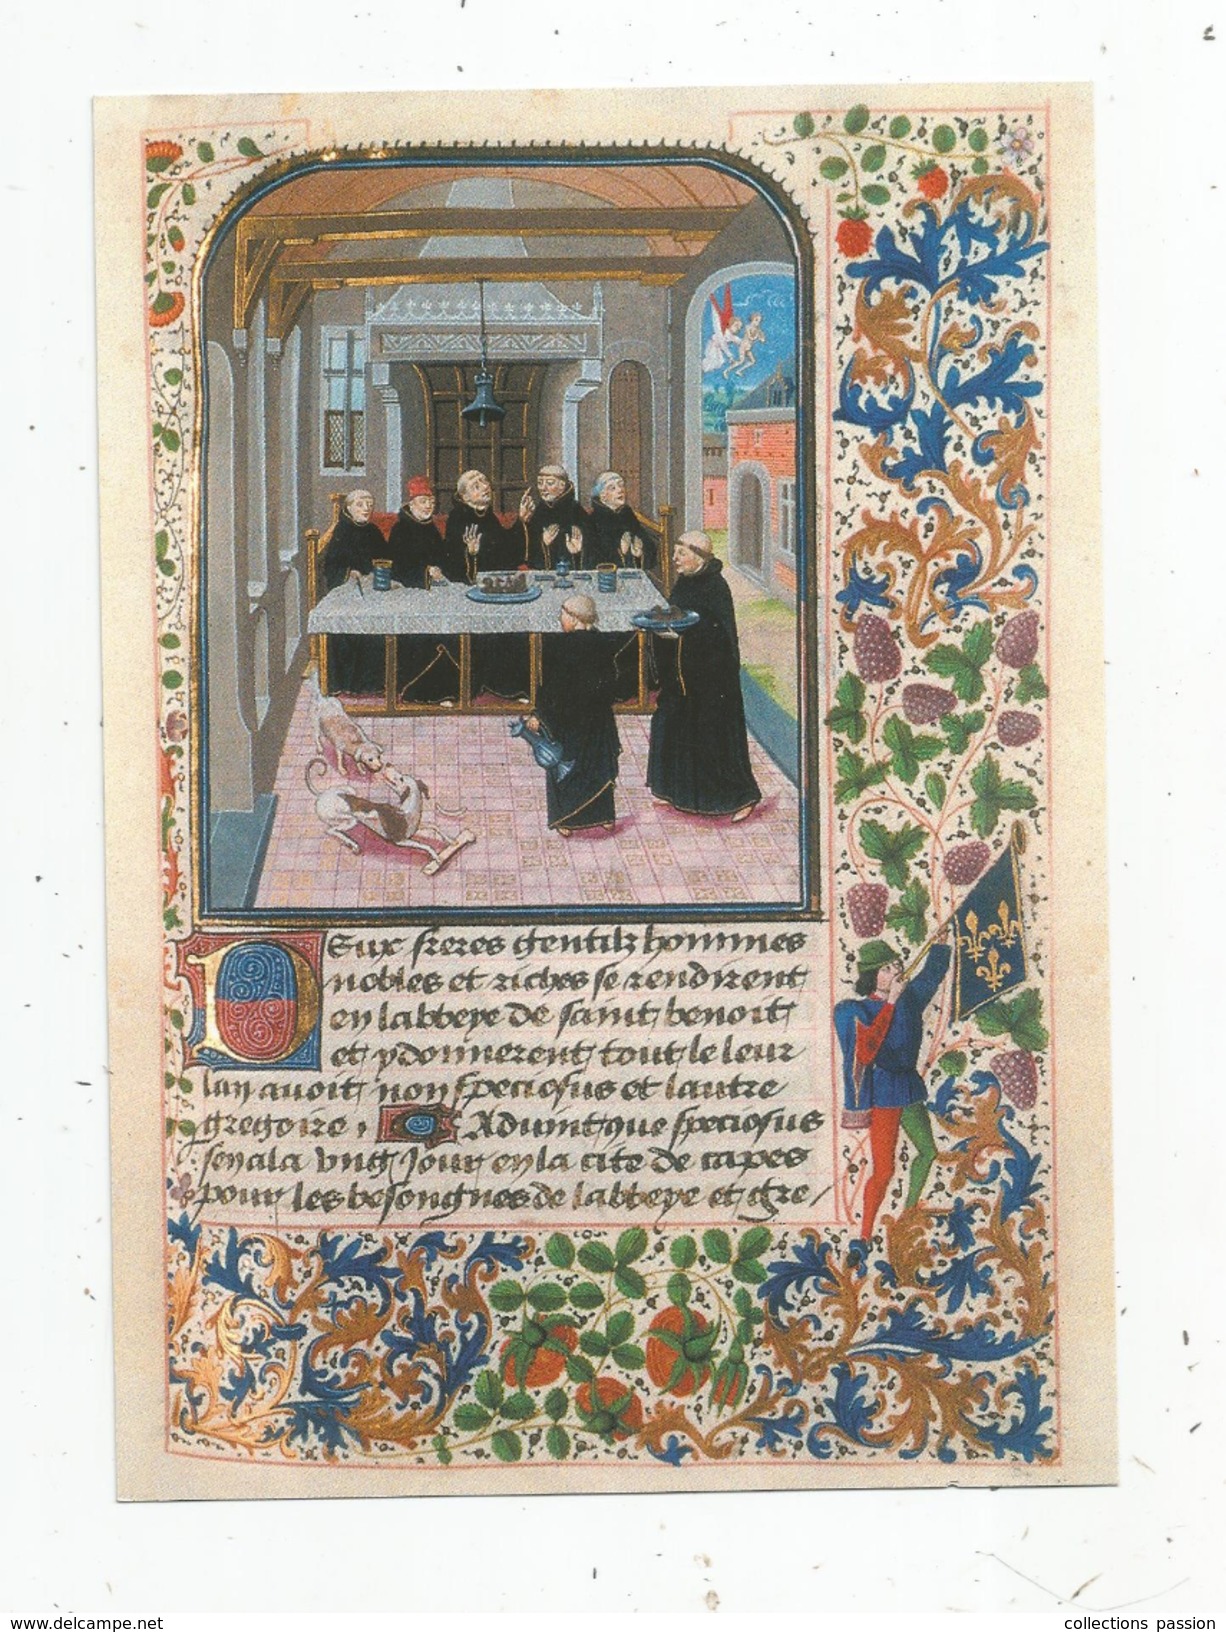 Deux freres gentilz hommes
nobles et riches se rendirent
en labbeye de saint benoit
et y donnerent tout le leur
lun avoit non speciosus et lautre
gregoire, Aduint que speciosus
sen ala ung jour en la cite de capes
pour les besongnes de labbeye et gre/
www.delcampe.net
collections passion